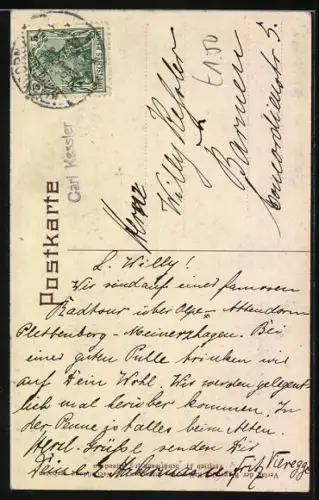 Postkarte
Carl Kessler
£1.50
Herrn
Willy Keßler
in
Barmen
Concordienstr 5.
L. Willy!
Wir sind auf einer famosen
Radtour über Olpe - Attendorn
Plettenberg - Meinerzhagen. Bei
einer guten Pulle trinken wir
auf Dein Wohl. Wir werden gelegent
lich mal herüber kommen. In
der Penne ist alles beim Alten
Herzl. Grüße senden Dir
Deine
Fritz Vieregge
Verlag